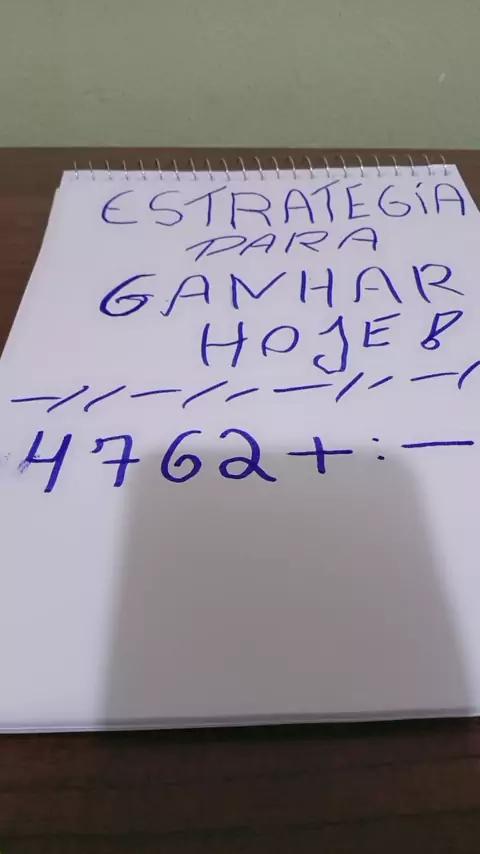 ESTRATEGIA
PARA
GANHAR
HOJE 8
—//—/-—/-—/
4762+:—